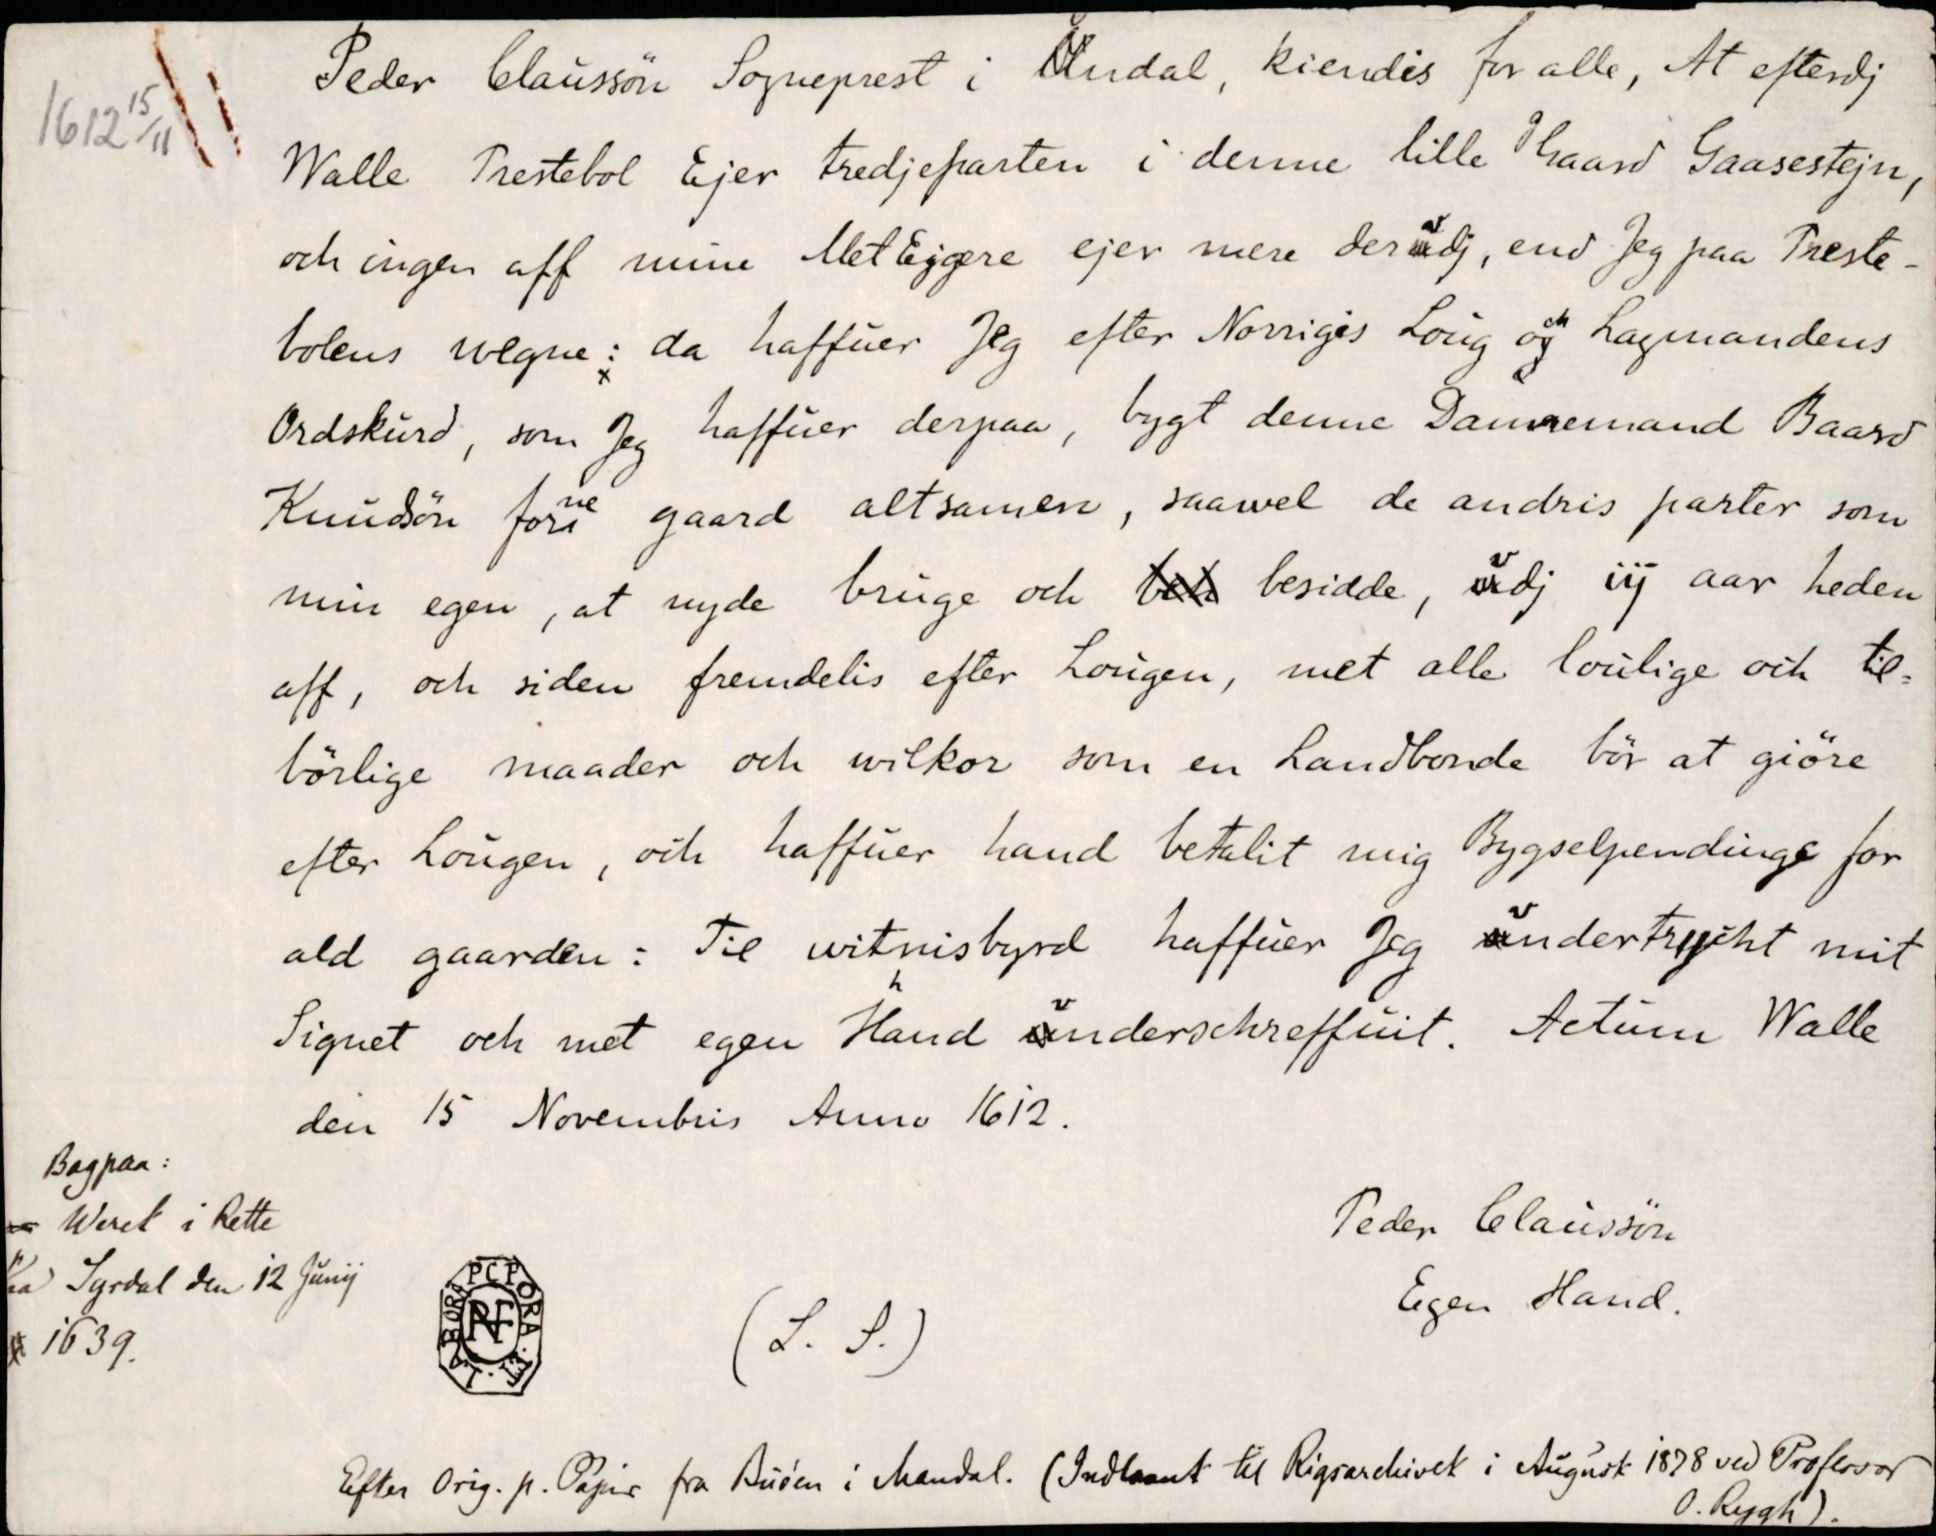 1612 15/11
Peder Claussön Sogneprest i Undal, kiendis for alle, At efterdj
Walle Prestebol Ejer tredjeparten i denne lille Gaard Gaasestejn,
och ingen aff mine Met Ejgere ejer mere der vdj, end Jeg paa Preste-
bolens wegne: da haffuer Jeg efter Norrigis Loug och Lagmandens
Ordskurd, som Jeg haffuer derpaa, bygt denne Dannemand Baard
Knudsön forne gaard altsamen, saawel de andris parter som
min egen, at nyde bruge och besidde, vdj iij aar heden
aff, och siden fremdelis efter Lougen, met alle loulige och til-
börlige maader och wilkor som en Landbonde bör at giöre
efter Lougen, och haffuer hand betalit mig Bygselpendinge for
ald gaarden: Til witnisbyrd haffuer Jeg vndertrycht mit
Signet och met egen Hand vnderschreffuit. Actum Walle
den 15 Novembris Anno 1612.
Peder Claussön
Egen Hand.
Bagpaa:
Weret i Rette
paa Syrdal den 12 Junij
1639.
PCF ORA ET LABORA
(L. S.)
Efter Orig. p. Papir fra Buöen i Mandal. (Indlaant til Rigsarchivet i August 1878 ved Professor
O. Rygh).